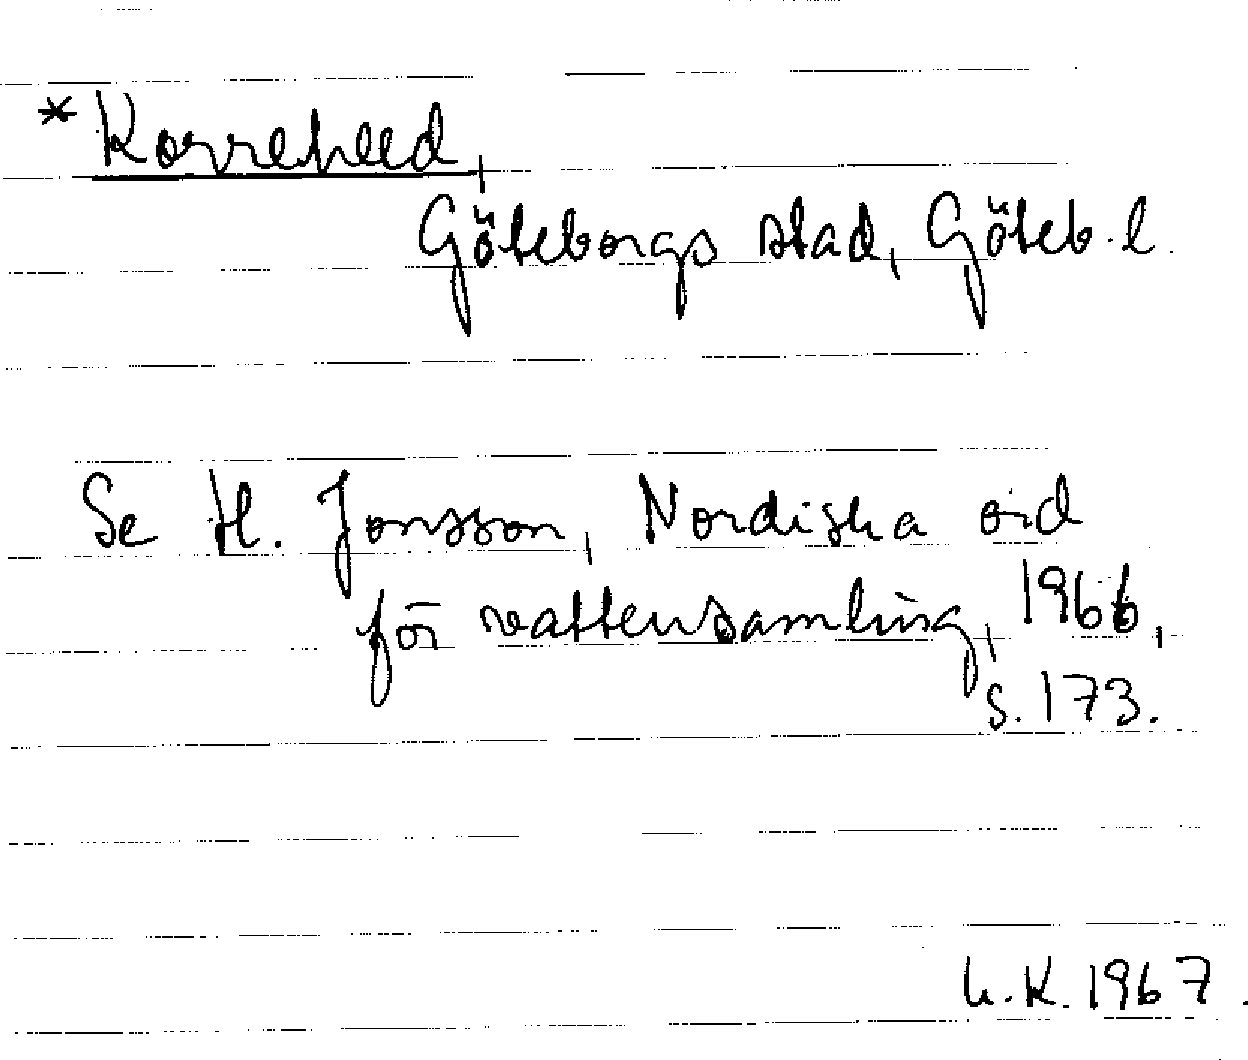 * Korreheed,
Göteborgs stad, Göteb. l.
Se H. Jonsson, Nordiska ord
för vattensamling, 1966,
s. 173.
L.K. 1967.